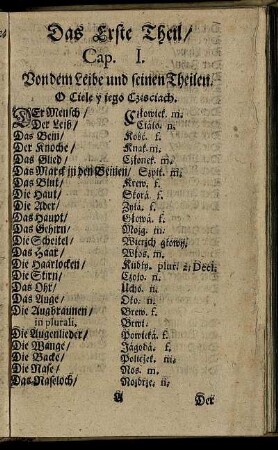 Das Erste Theil/
Cap. I.
Von dem Leibe und seinen Theilen.
O Ciele y jego Czesciach.
DEr Mensch/ Człowiek. m.
Der Leib/ Ciáło. n.
Das Bein/ Kość. f.
Der Knoche/ Knat. m.
Das Glied/ Członek. m.
Das Marck in den Beinen/ Szpik. m.
Das Blut/ Krew. f.
Die Haut/ Skorá. f.
Die Ader/ Zyłá. f.
Das Haupt/ Głowá. f.
Das Gehirn/ Mozg. m.
Die Scheitel/ Wierzch głowy.
Das Haar/ Włos. m.
Die Haarlocken/ plur. 2. Decl.
Die Stirn/ Czoło. n.
Das Ohr/ Ucho. n.
Das Auge/ Oko. n.
Die Augbraunen/ Brew. f.
in plurali, Brwi.
Die Augenlieder/ Powieká. f.
Die Wange/ Jágodá. f.
Die Backe/ Policzek. m.
Die Nase/ Nos. m.
Das Naseloch/ Nozdrze. n.
A Der